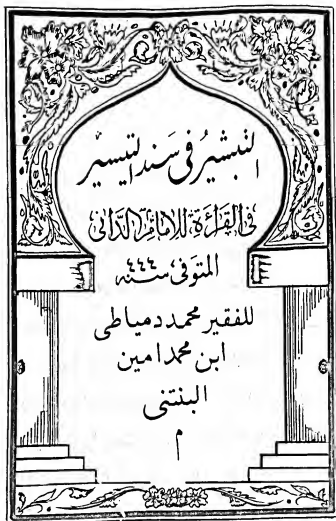 التبشير فى سند التيسير
فى القراءة للإمام الدانى
المتوفى سنه ٤٤٤
للفقير محمد دمياطى
ابن محمد امين
البنتنى
م